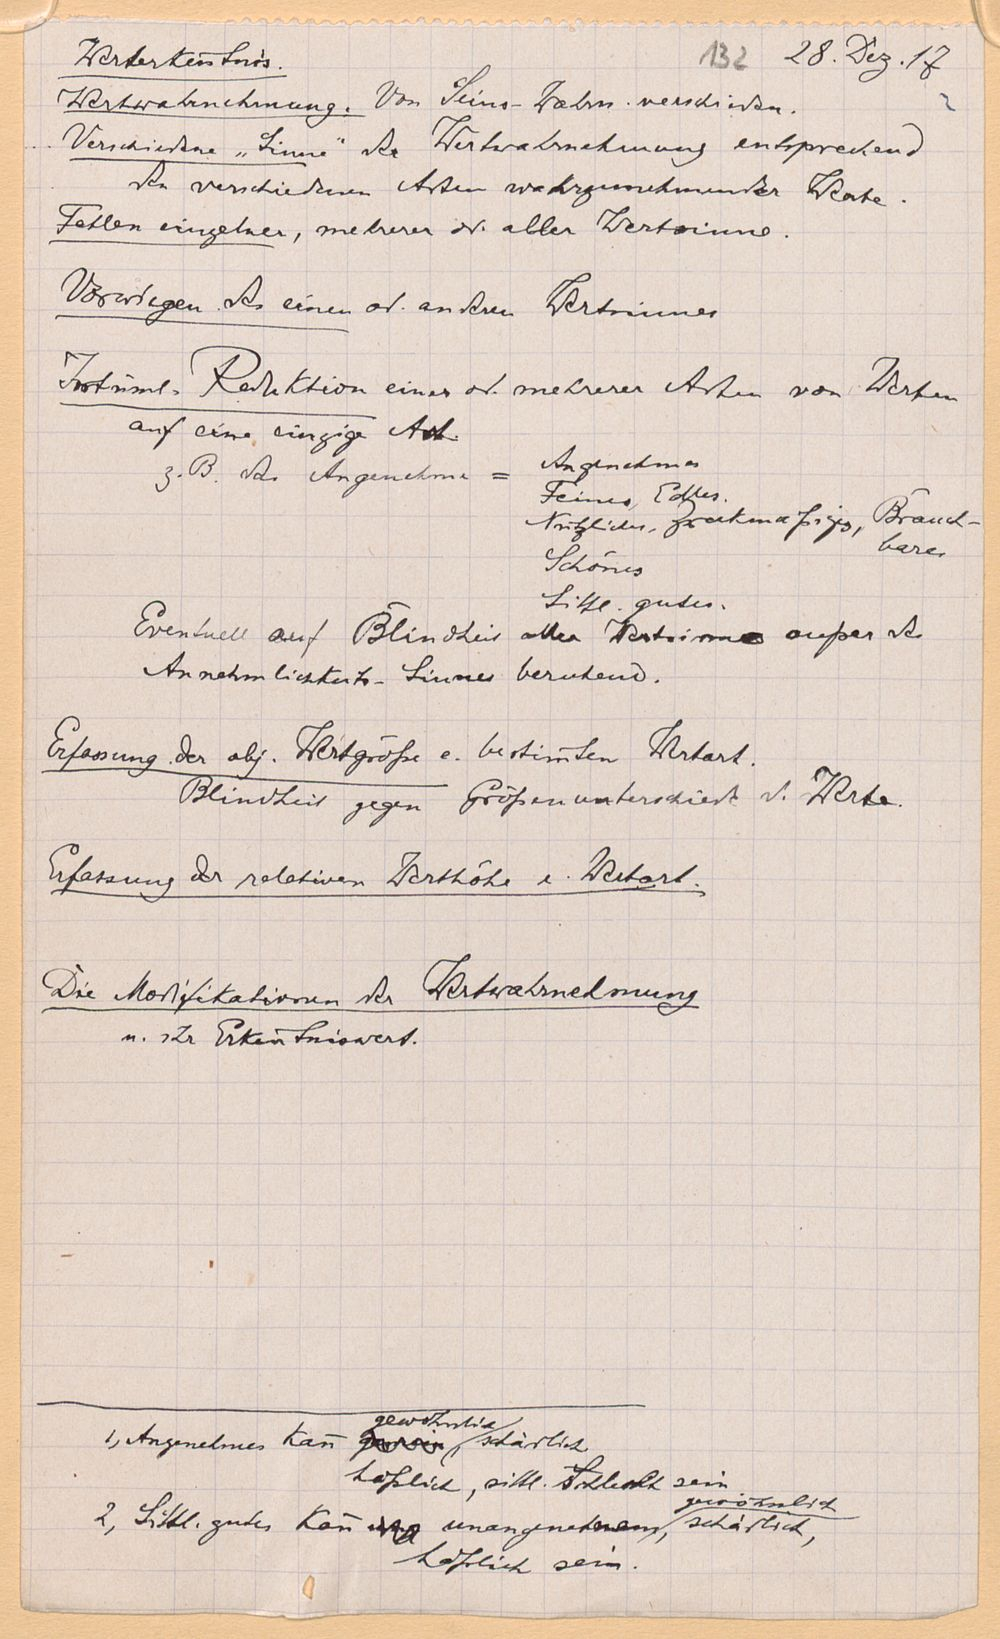 132 28. Dez. 17
Werterkentnis.
Wertwahrnehmung. Von Seins-Wahrn. verschieden.
Verschiedene „Sinne" der Wertwahrnehmung entsprechend
den verschiedenen Arten wahrzunehmender Werte.
Fehlen einzelner, mehrerer od. aller Wertsinne.
Vorwiegen des einen od. anderen Wertsinnes
Irrtüml. Reduktion einer od. mehrerer Arten von Werten
auf eine einzige Art.
z.B. das Angenehme = Angenehmes
Feines, Edles.
Nützliches, Zweckmäßiges, Brauch-
bares
Schönes
Sittl. gutes.
Eventuell auf Blindheit aller Wertsinne außer des
Annehmlichkeits-Sinnes beruhend.
Erfassung der obj. Wertgröße e. bestim̄ten Wertart.
Blindheit gegen Größenunterschiede d. Werte.
Erfassung der relativen Werthöhe e. Wertart.
Die Modifikationen der Wertwahrnehmung
u. ihr Erken̄tniswert.
1, Angenehmes kan̄ gewöhnlich, schädlich
häßlich, sittl. schlecht sein
2, Sittl. gutes kan̄ unangenehm, gewöhnlich schädlich,
häßlich sein.